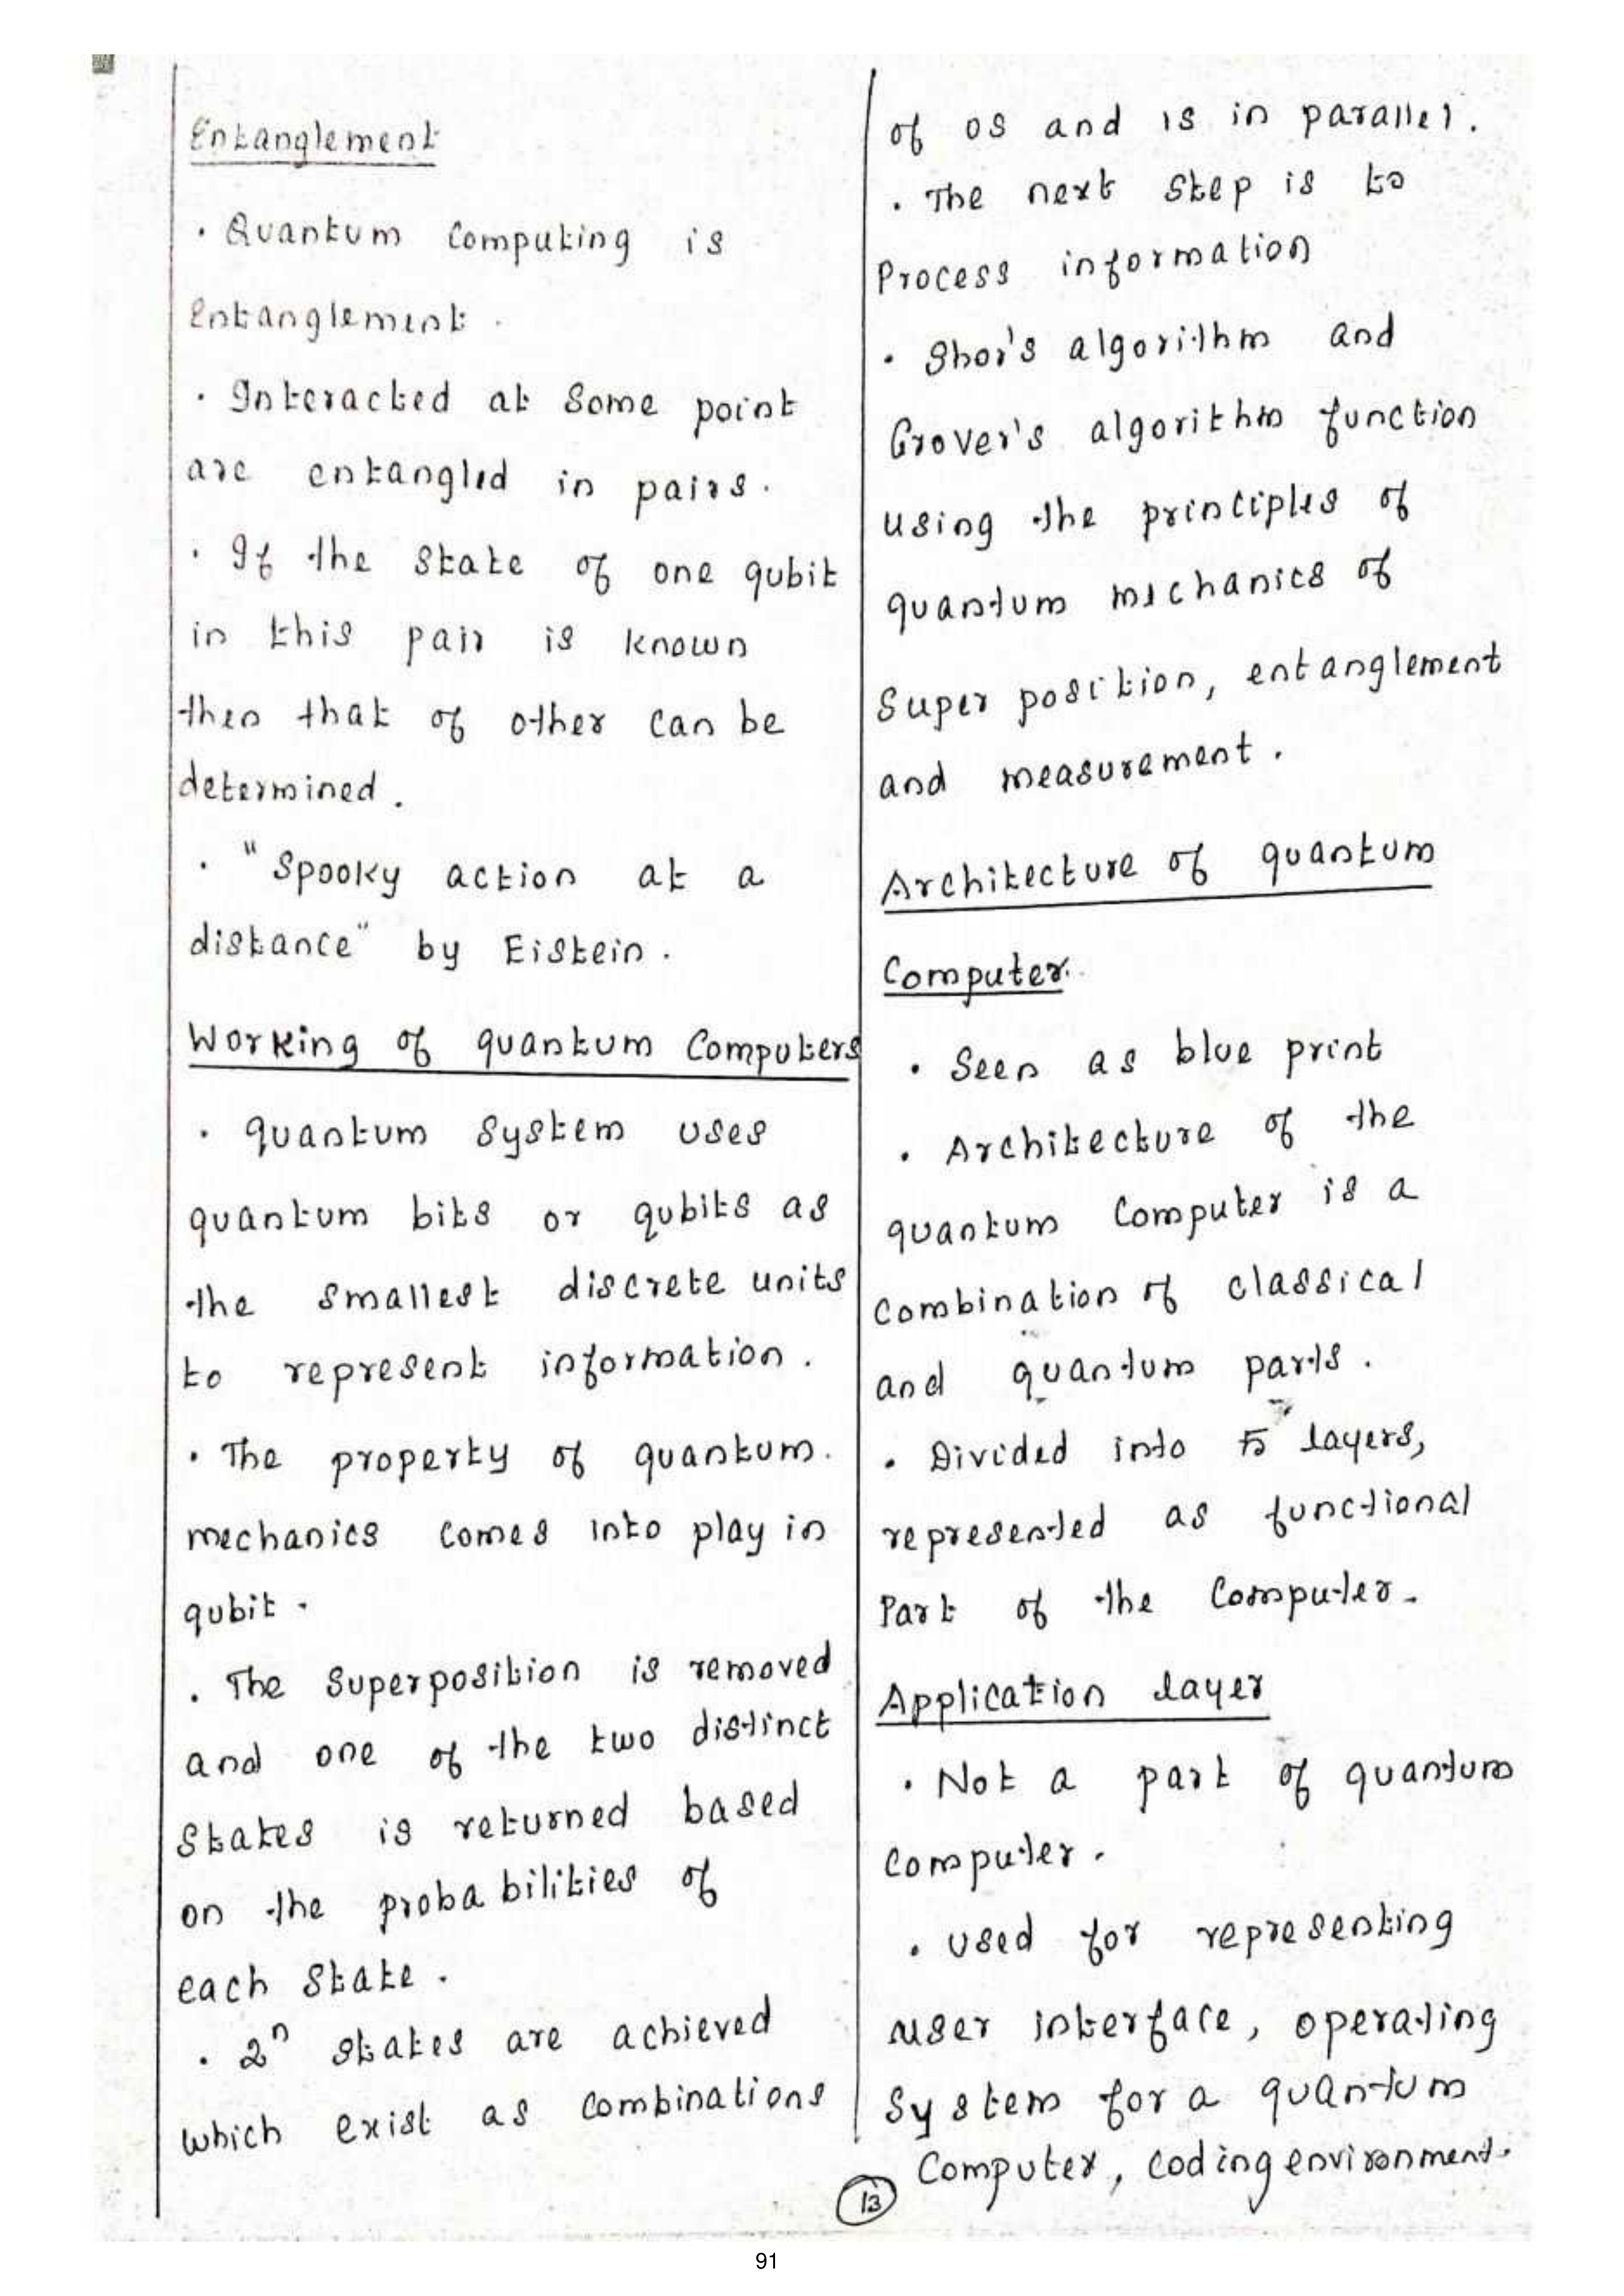 Entanglement
. Quantum Computing is
entanglement .
. Interacted at Some point
are entangled in pairs.
. If the State of one qubit
in this pair is known
then that of other can be
determined .
. "Spooky action at a
distance" by Eistein .
Working of quantum Computers
. quantum System uses
quantum bits or qubits as
the Smallest discrete units
to represent information .
. The property of quantum.
mechanics Comes into play in
qubit .
. The Superposition is removed
and one of the two distinct
States is returned based
on the probabilities of
each State .
. 2ⁿ States are achieved
which exist as Combinations
of 0s and 1s in parallel .
. The next Step is to
Process information
. Shor's algorithm and
Grover's algorithm function
using the principles of
quantum mechanics of
Super position, entanglement
and measurement .
Architecture of quantum
Computer.
. Seen as blue print
. Architecture of the
quantum Computer is a
Combination of classical
and quantum parts .
. Divided into 5 layers,
represented as functional
Part of the Computer.
Application layer
. Not a part of quantum
Computer .
. used for representing
user interface, operating
System for a quantum
Computer, coding environment.
13
91